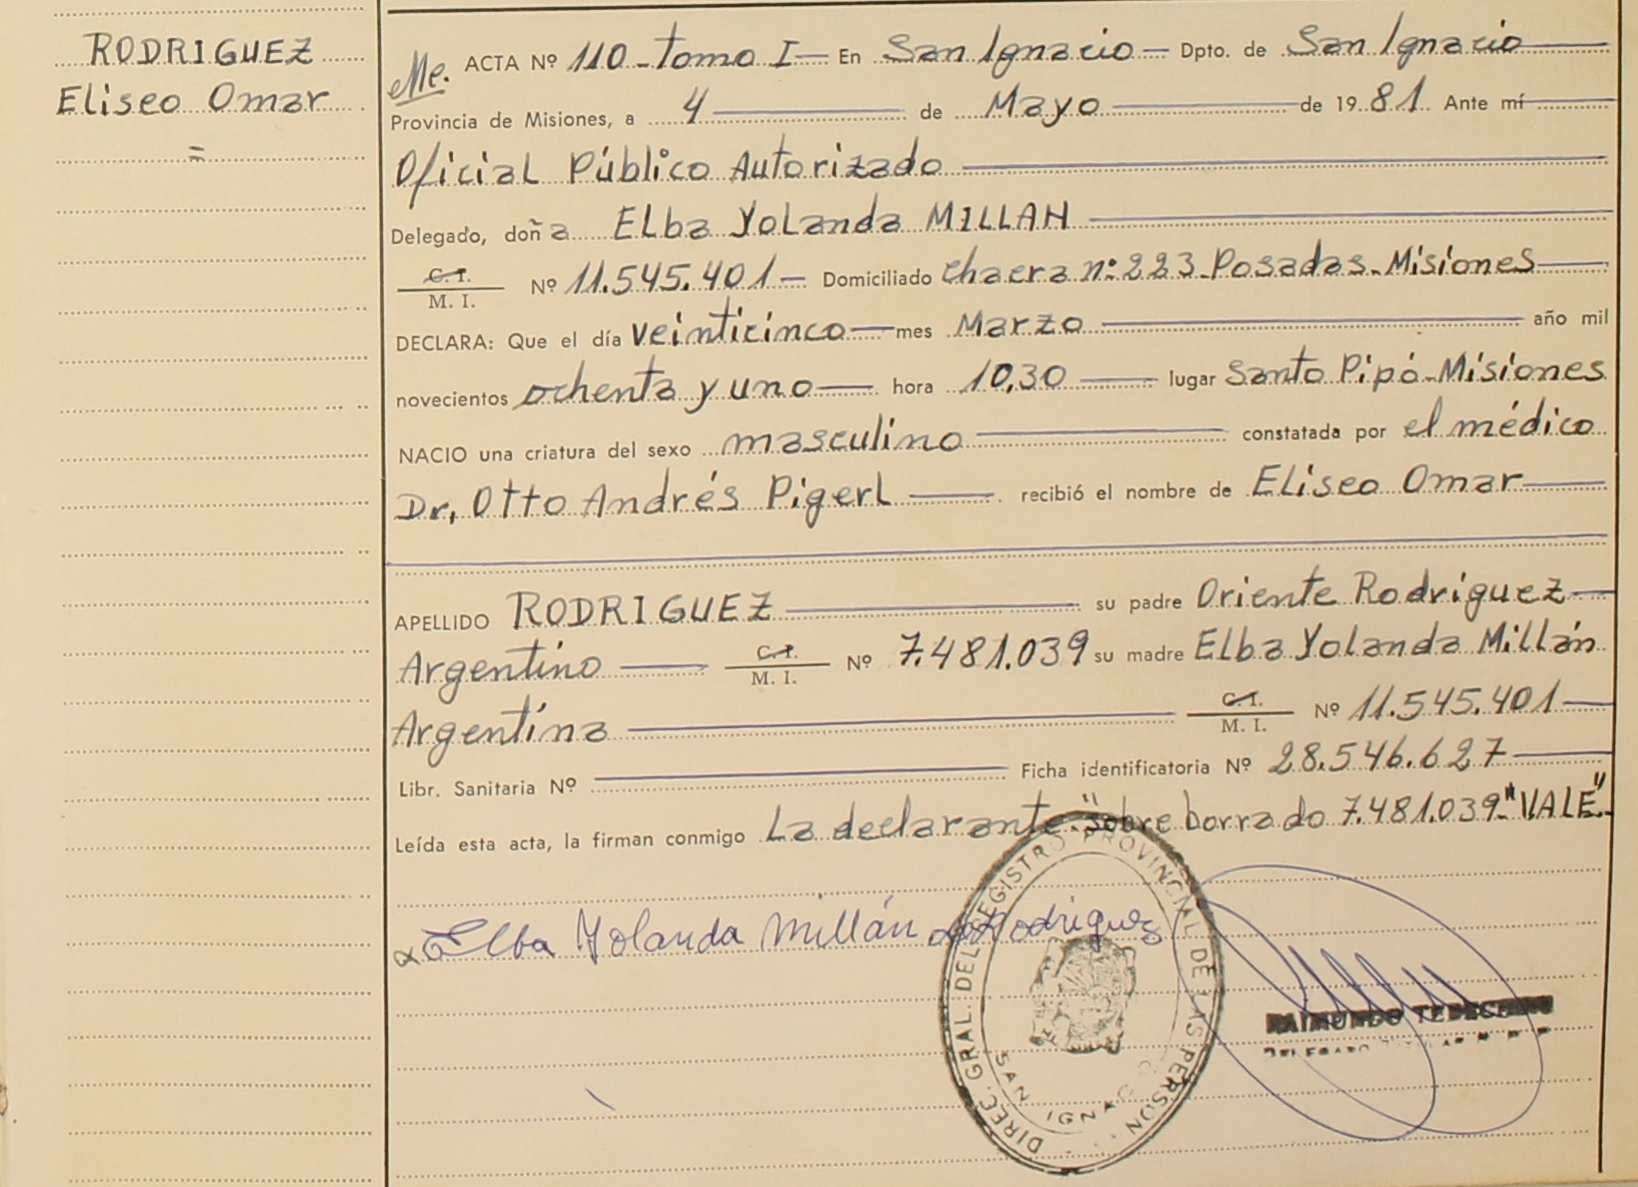 RODRIGUEZ
Eliseo Omar
=
Me. ACTA Nº 110 - Tomo I - En San Ignacio - Dpto. de San Ignacio
Provincia de Misiones, a 4 de Mayo de 1981. Ante mí
Oficial Público Autorizado
Delegado, doña Elba Yolanda MILLAN
C. I.
M. I. Nº 11.545.401 - Domiciliado chacra nº 223 - Posadas - Misiones
DECLARA: Que el día veinticinco mes Marzo año mil
novecientos ochenta y uno hora 10,30 lugar Santo Pipó - Misiones
NACIO una criatura del sexo masculino constatada por el médico
Dr. Otto Andrés Pigerl recibió el nombre de Eliseo Omar
APELLIDO RODRIGUEZ su padre Oriente Rodriguez
Argentino C. I. M. I. Nº 7.481.039 su madre Elba Yolanda Millán
Argentina C. I. M. I. Nº 11.545.401
Libr. Sanitaria Nº Ficha identificatoria Nº 28.546.627
Leída esta acta, la firman conmigo La declarante. "Sobre borrado 7.481.039" "VALE".
Elba Yolanda Millán de Rodriguez
DIREC. GRAL. DEL REGISTRO PROVINCIAL DE LAS PERSON
SAN IGNACIO
RAIMUNDO